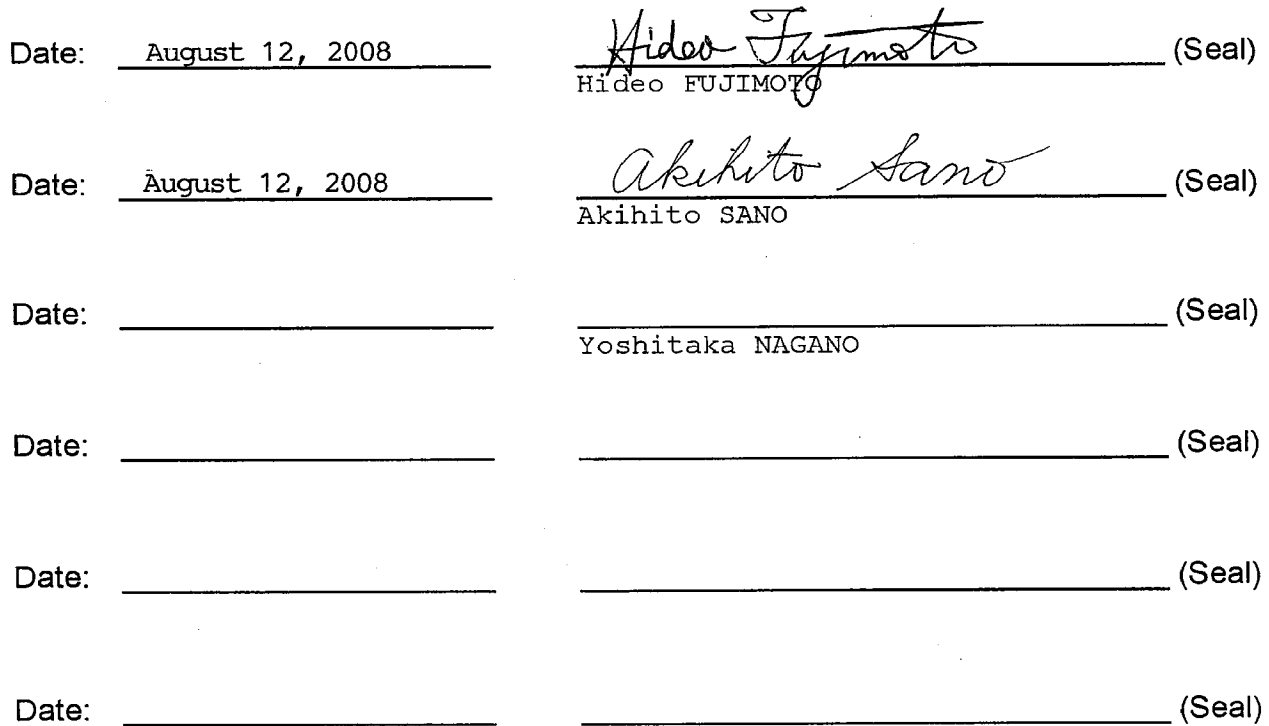 Date: August 12, 2008 Hideo Fujimoto (Seal)
Hideo FUJIMOTO
Date: August 12, 2008 Akihito Sano (Seal)
Akihito SANO
Date: (Seal)
Yoshitaka NAGANO
Date: (Seal)
Date: (Seal)
Date: (Seal)